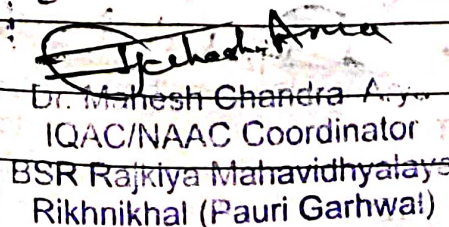 Dr. Mahesh Chandra
IQAC/NAAC Coordinator
BSR Rajkiya Mahavidhyalaya
Rikhnikhal (Pauri Garhwal)